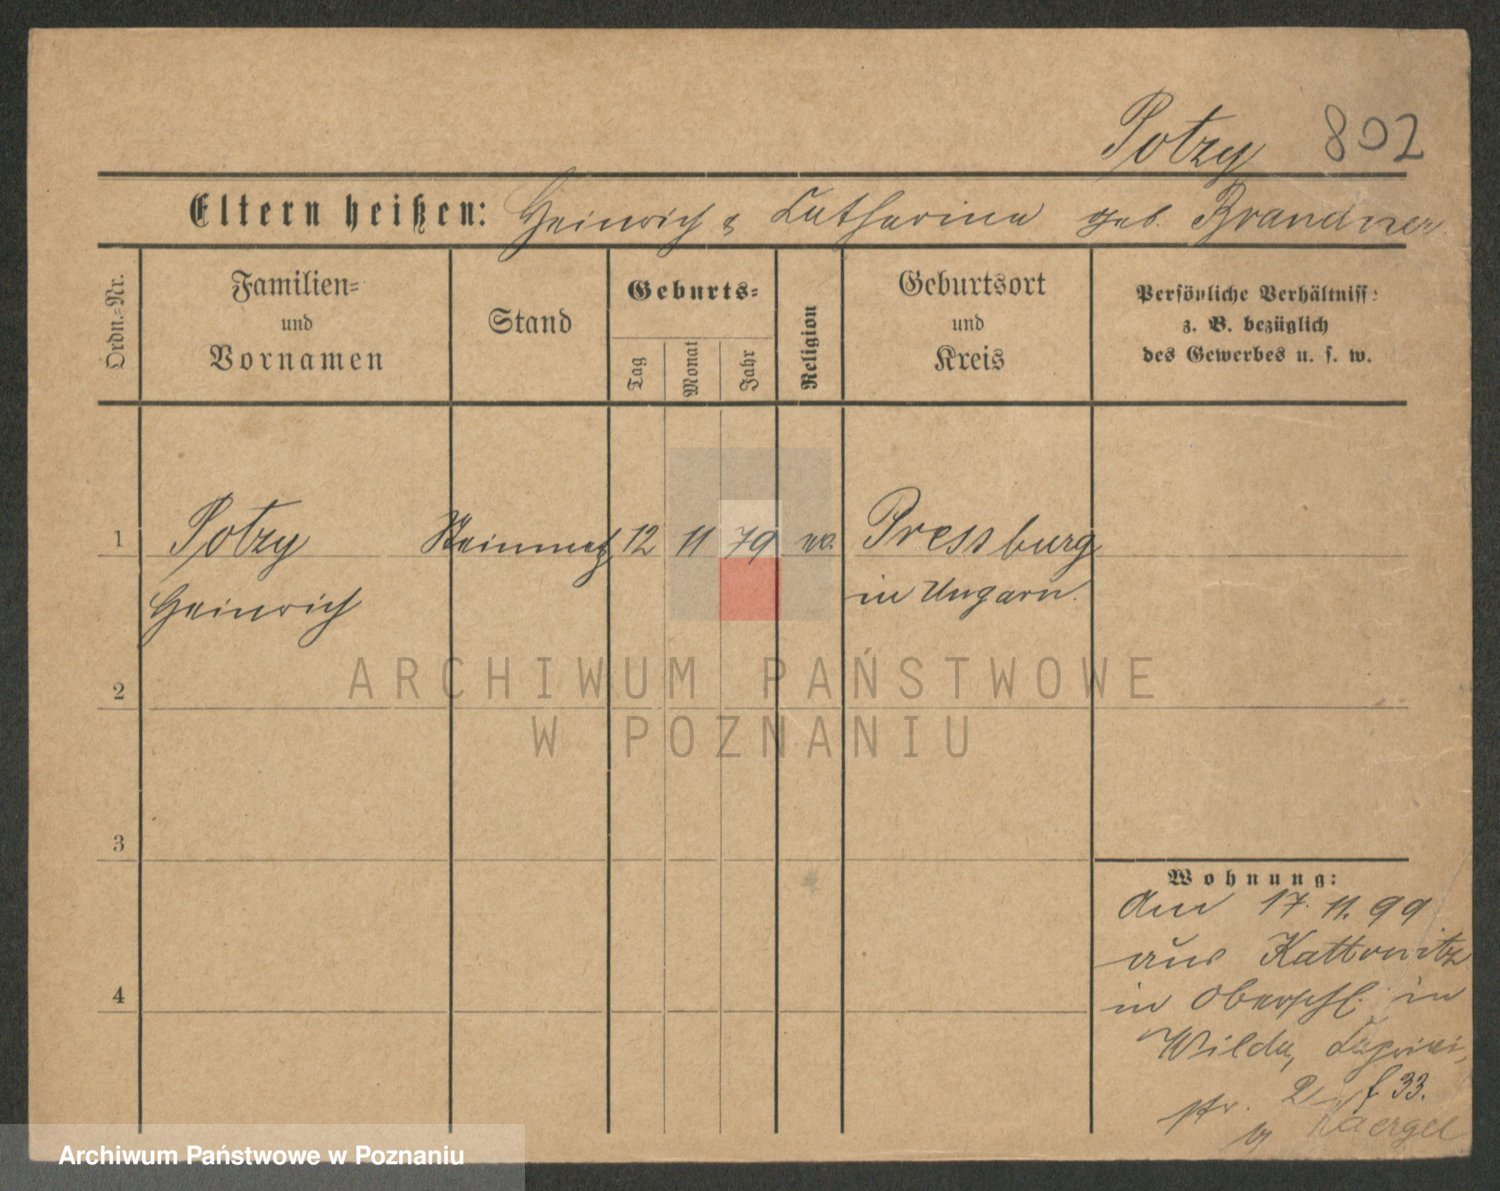 Potzy 802
Eltern heißen: Heinrich & Catharina geb. Brandner
Ordn.-Nr.
Familien=
und
Vornamen
Stand
Geburts=
Tag
Monat
Jahr
Religion
Geburtsort
und
Kreis
Persönliche Verhältniss:
z. B. bezüglich
des Gewerbes u. s. w.
1 Potzy Steinmetz 12 11 79 Pressburg
Heinrich in Ungarn.
2
3
4
Wohnung:
Am 17. 11. 99
aus Kattowitz
in Oberschl. in
Wilda,
str. 2 f 33.
ARCHIWUM PAŃSTWOWE
W POZNANIU
Archiwum Państwowe w Poznaniu